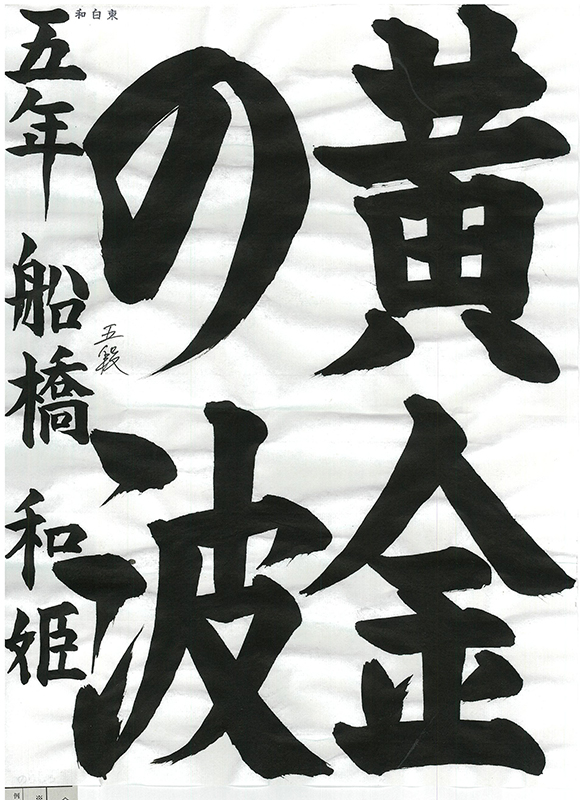 黄金
の波
五年 船橋 和姫
東白和
五段